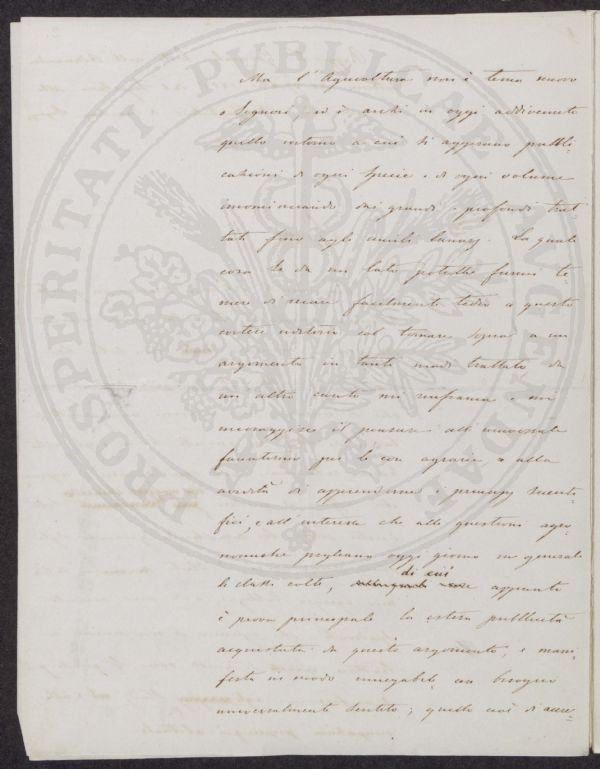 Ma l'Agricoltura non è tema nuovo
o Signori, ed è anzi in oggi addivenuto
quello intorno a cui si aggirano pubbli-
cazioni di ogni specie e di ogni volume
incominciando dai grandi e profondi trat-
tati fino agli umili lunarj. La quale
cosa se da un lato potrebbe farmi te-
mere di recare facilmente tedio a questo
cortese uditorio col tornare sopra a un
argomento in tanti modi trattato da
un altro canto mi rinfranca e mi
incoraggisce il pensare all'universale
fanatismo per le cose agrarie, e alla
avidità di apprenderne i principj scienti-
fici, e all'interesse che alle questioni agro-
nomiche pigliano oggi giorno in generale
le classi colte, di cui appunto
è prova principale la estesa pubblicità
acquistata da questo argomento; e mani-
festa in modo innegabile un bisogno
universalmente sentito; quello cioè di accre-
PROSPERITATI PVBLICAE AVGENDAE